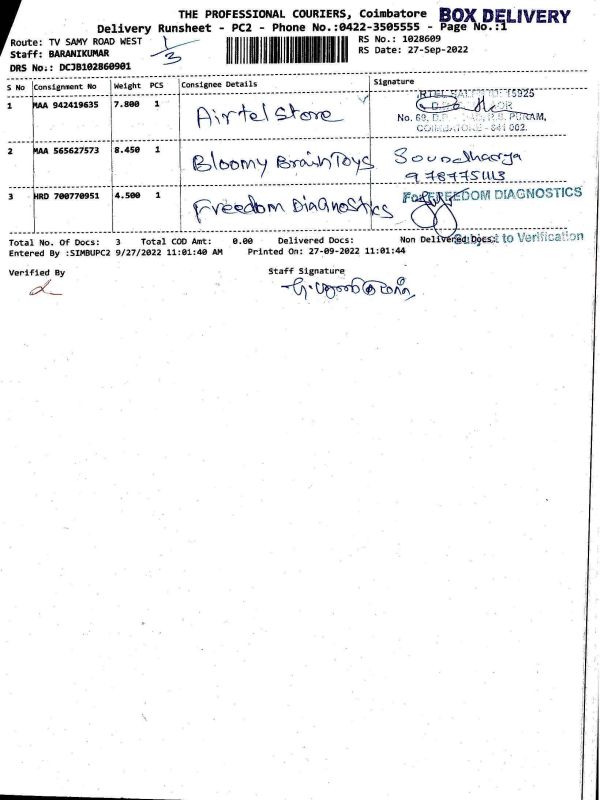 THE PROFESSIONAL COURIERS, Coimbatore BOX DELIVERY
Delivery Runsheet - PC2 - Phone No.:0422-3505555 - Page No.:1
Route: TV SAMY ROAD WEST 1/3 RS No.: 1028609
Staff: BARANIKUMAR RS Date: 27-Sep-2022
DRS No.: DCJB102860901
S No Consignment No Weight PCS Consignee Details Signature
1 MAA 942419635 7.800 1 Airtel Store
No. 69, D.B. R.S. PURAM,
COIMBATORE - 641 002.
2 MAA 565627573 8.450 1 Bloomy Brain Toys Soundharya
9787751113
3 HRD 700770951 4.500 1 Freedom Diagnostics For FREEDOM DIAGNOSTICS
Subject to Verification
Total No. Of Docs: 3 Total COD Amt: 0.00 Delivered Docs: Non Delivered Docs:
Entered By :SIMBUPC2 9/27/2022 11:01:40 AM Printed On: 27-09-2022 11:01:44
Verified By Staff Signature